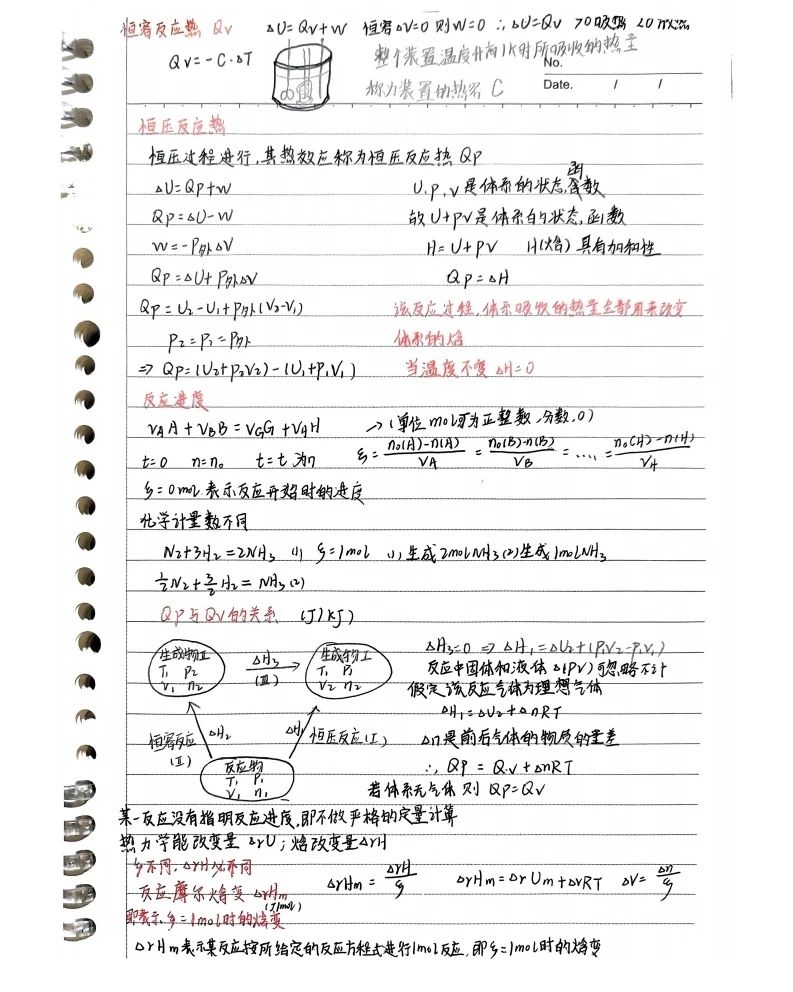 恒容反应热 Qv ΔU=Qv+W 恒容ΔV=0 则W=0 ∴ΔU=Qv >0吸热 <0放热
Qv=-C·ΔT 整个装置温度升高1K时所吸收的热量
称为装置的热容 C
No.
Date. / /
恒压反应热
恒压过程进行,其热效应称为恒压反应热 Qp
ΔU=Qp+W U.p.V是体系的状态函数
Qp=ΔU-W 故U+pV是体系的状态函数
W=-P外ΔV H=U+PV H(焓)具有加和性
Qp=ΔU+P外ΔV Qp=ΔH
Qp=U2-U1+P外(V2-V1) 该反应过程,体系吸收的热量全部用来改变
P2=P1=P外 体系的焓
⇒ Qp=(U2+P2V2)-(U1+P1V1) 当温度不变 ΔH=0
反应进度
νAA+νBB=νGG+νHH →(单位mol可为正整数,分数,0)
t=0 n=n₀ t=t 为n ξ=n₀(A)-n(A)/νA=n₀(B)-n(B)/νB=....=n₀(H)-n(H)/νH
ξ=0mol 表示反应开始时的进度
化学计量数不同
N2+3H2=2NH3 (1) ξ=1mol (1)生成2molNH3 (2)生成1molNH3
½N2+3/2H2=NH3(2)
Qp与Qv的关系 (J)(KJ)
生成物Ⅱ T1 P2 V1 n2
ΔH3 (Ⅲ)
生成物Ⅰ T1 P1 V2 n2
ΔH3=0 ⇒ ΔH1=ΔU2+(P1V2-P1V1)
反应中固体和液体Δ(PV)可忽略不计
假定该反应气体为理想气体
ΔH1=ΔU2+ΔnRT
恒容反应(Ⅱ) ΔH2 ΔH1 恒压反应(Ⅰ)
Δn是前后气体的物质的量差
反应物 T1 P1 V1 n1
∴ Qp = Qv+ΔnRT
若体系无气体则 Qp=Qv
某一反应没有指明反应进度,即不做严格的定量计算
热力学能改变量 ΔrU;焓改变量ΔrH
ξ不同,ΔrH必不同
反应摩尔焓变 ΔrHm (J/mol) ΔrHm=ΔrH/ξ ΔrHm=ΔrUm+ΔνRT Δν=Δn/ξ
即表示ξ=1mol时的焓变
ΔrHm表示某反应按所给定的反应方程式进行1mol反应,即ξ=1mol时的焓变